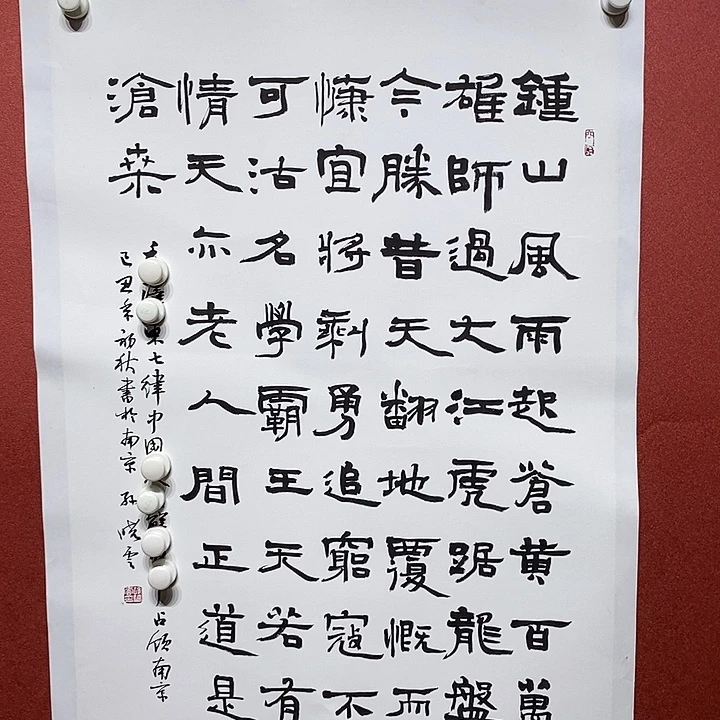 鍾山風雨起蒼黃百萬
雄師過大江虎踞龍盤
今勝昔天翻地覆慨而
慷宜將剩勇追窮寇不
可沽名學霸王天若有
情天亦老人間正道是
滄桒
七律中国 占領南京
己丑年初秋書於南京 孙晓雲